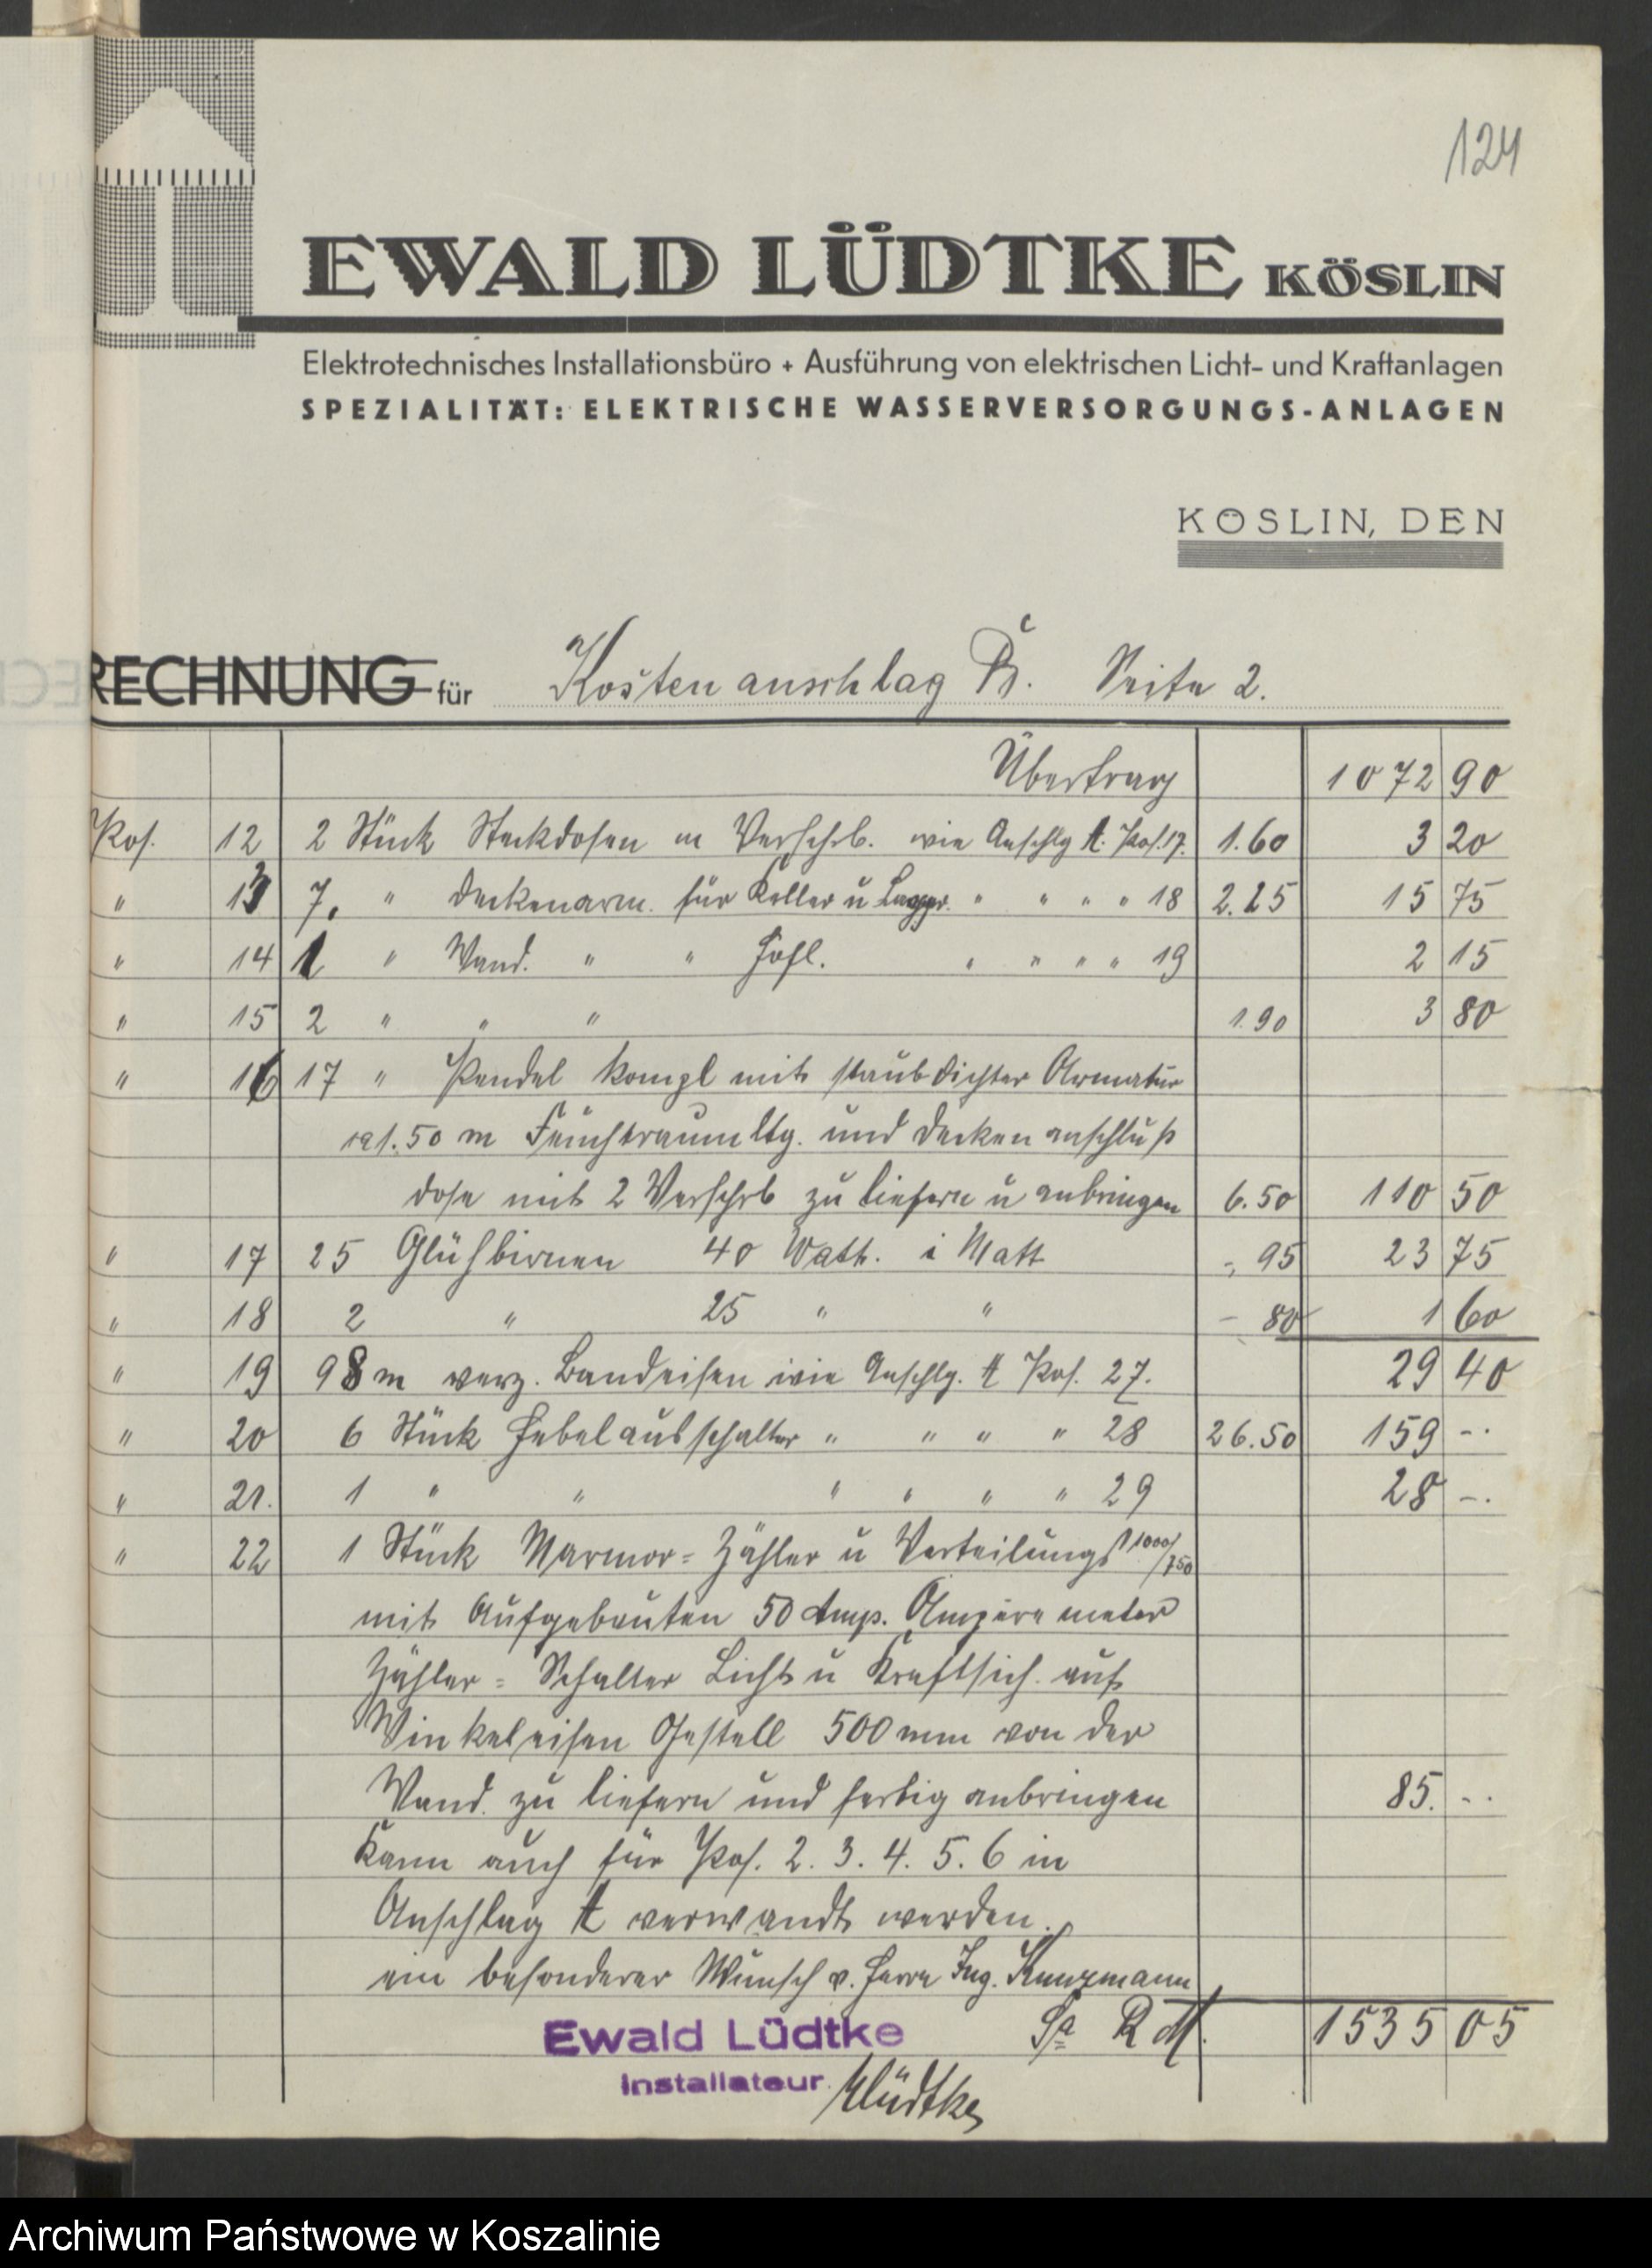 124
EWALD LÜDTKE KÖSLIN
Elektrotechnisches Installationsbüro + Ausführung von elektrischen Licht- und Kraftanlagen
SPEZIALITÄT: ELEKTRISCHE WASSERVERSORGUNGS-ANLAGEN
KÖSLIN, DEN
RECHNUNG für Kostenanschlag B. Seite 2.
Übertrag 1072 90
Pos. 12 2 Stück Steckdosen m Verschrb. wie Anschlg A. Pos. 17. 1.60 3 20
" 13 7. " Deckenarm. für Keller u Lager. " " " " 18 2.25 15 75
" 14 1 " Wand. " " Hofl. " " " " 19 2 15
" 15 2 " " " 1.90 3 80
" 16 17 " Pendel kompl mit staubdichter Armatur
ca 1.50 m Feuchtraumltg. und Deckenanschluß
dose mit 2 Verschrb zu liefern u anbringen 6.50 110 50
" 17 25 Glühbirnen 40 Watt. i Matt -, 95 23 75
" 18 2 " 25 " " - 80 1 60
" 19 98 m verz. Bandeisen wie Anschlg. A Pos. 27. 29 40
" 20 6 Stück Hebelausschalter " " " " 28 26.50 159 -.
" 21. 1 " " " " " " 29 28 -.
" 22 1 Stück Marmor= Zähler u Verteilungs 1000/750
mit Aufgebauten 50 Amp. Amperemeter
Zähler = Schalter Licht u Kraftsich. auf
Winkeleisen Gestell 500 mm von der
Wand. zu liefern und fertig anbringen 85. -.
Kann auch für Pos. 2. 3. 4. 5. 6 in
Anschlag A verwandt werden.
ein besonderer Wunsch v. Herrn Ing. Kunzmann
Sa RM. 1535 05
Ewald Lüdtke
Installateur
ELüdtke
Archiwum Państwowe w Koszalinie